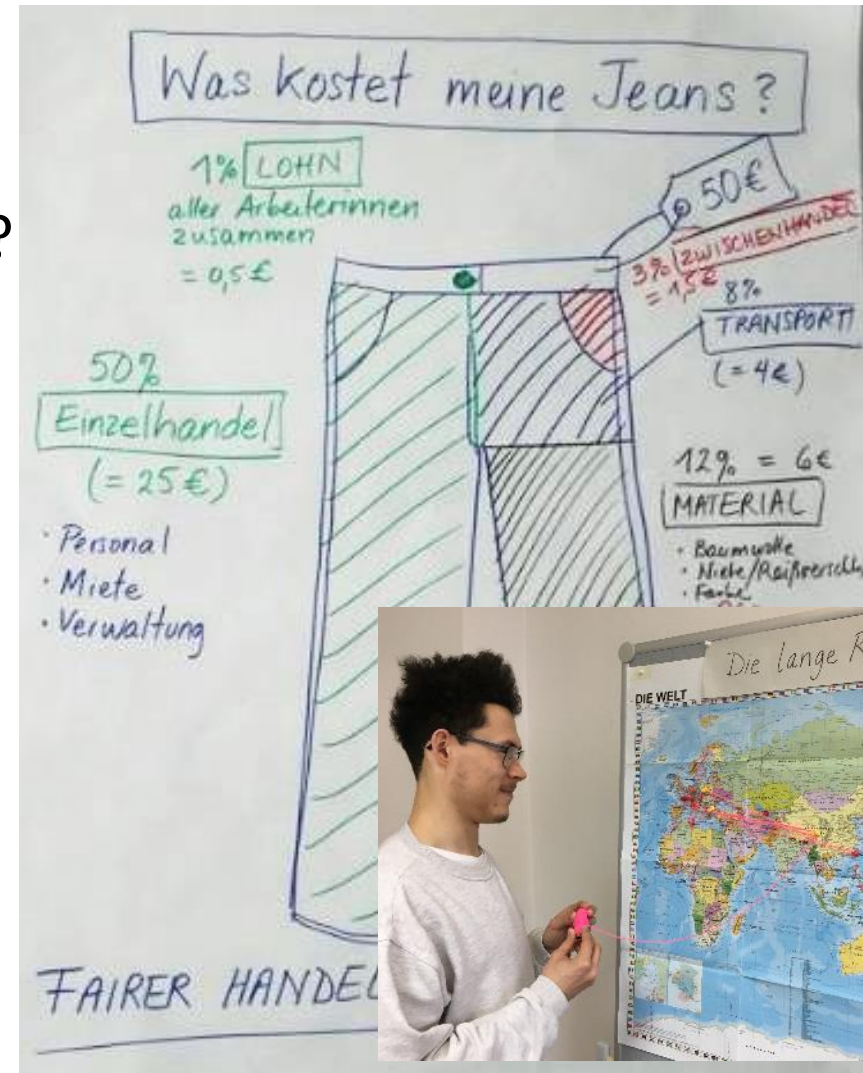 ?
Was kostet meine Jeans?
1% LOHN
aller Arbeiterinnen
zusammen
= 0,5 €
50 €
3% ZWISCHENHANDEL
= 1,5 €
8%
TRANSPORT
(= 4€)
50%
Einzelhandel
(= 25 €)
· Personal
· Miete
· Verwaltung
12% = 6€
MATERIAL
· Baumwolle
· Niete/Reißverschl
· Farbe
FAIRER HANDEL
Die lange R
DIE WELT